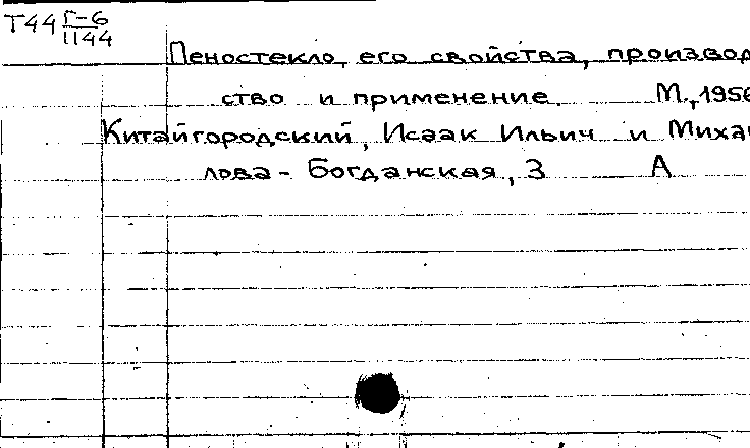 Т44 Г-6
1144
Пеностекло, его свойства, производ
ство и применение М., 1956
Китайгородский, Исаак Ильич и Михай
лова-Богданская, З А